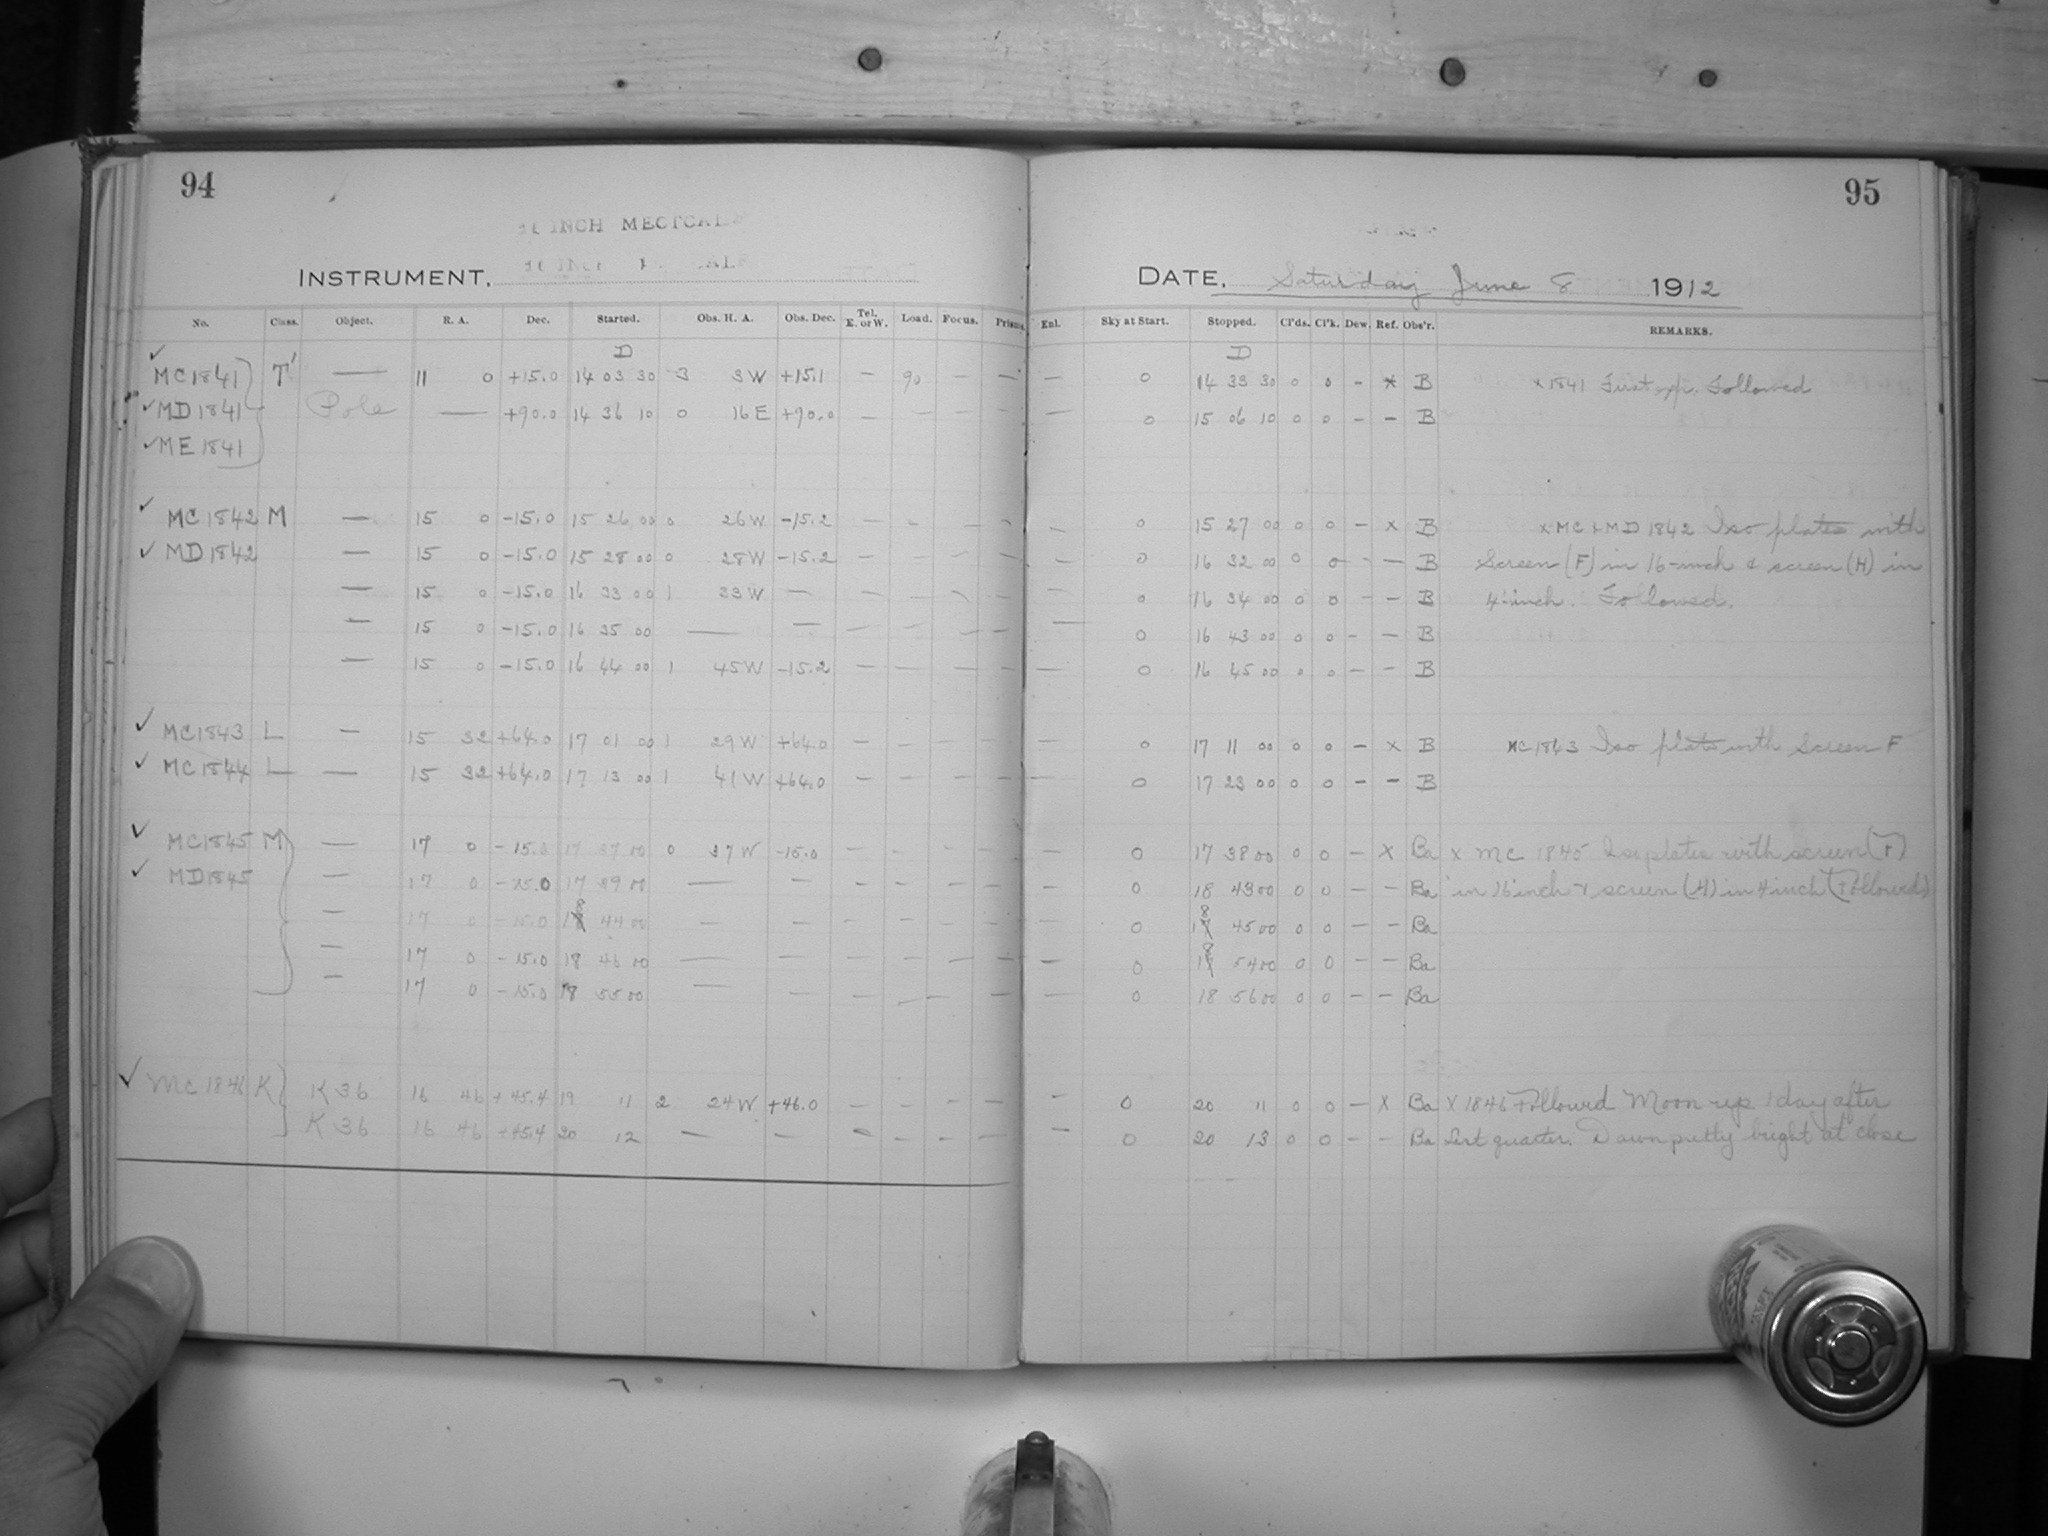 94
95
16 INCH METCALF
INSTRUMENT.
DATE. Saturday June 8 1912
No. Class. Object. R. A. Dec. Started. Obs. H. A. Obs. Dec. Tel. E. or W. Load. Focus. Prism. Enl. Sky at Start. Stopped. Cl'ds. Cl'k. Dew. Ref. Obs'r. REMARKS.
D D
✓ MC1841 T' — 11 0 +15.0 14 03 30 3 3W +15.1 — 90 — — — 0 14 33 30 0 0 - x B x 1841 First exp. Followed
✓ MD1841 Pole — +90.0 14 36 10 0 16E +90.0 — — — — — 0 15 06 10 0 0 - - B
✓ ME1841
✓ MC1842 M — 15 0 -15.0 15 26 00 0 26W -15.2 — — — — — 0 15 27 00 0 0 - x B x MC + MD 1842 Iso plates with
✓ MD1842 — 15 0 -15.0 15 28 00 0 28W -15.2 — — — — — 0 16 32 00 0 0 - - B Screen (F) in 16-inch & screen (H) in
— 15 0 -15.0 16 33 00 1 33W — — — — — — 0 16 34 00 0 0 - - B 4-inch. Followed.
— 15 0 -15.0 16 35 00 — — — — — — — 0 16 43 00 0 0 - - B
— 15 0 -15.0 16 44 00 1 45W -15.2 — — — — — 0 16 45 00 0 0 - - B
✓ MC1843 L — 15 32 +64.0 17 01 00 1 29W +64.0 — — — — — 0 17 11 00 0 0 - x B MC1843 Iso plate with Screen F
✓ MC1844 L — 15 32 +64.0 17 13 00 1 41W +64.0 — — — — — 0 17 23 00 0 0 - - B
✓ MC1845 M — 17 0 -15.0 17 37 00 0 37W -15.0 — — — — — 0 17 38 00 0 0 - x Ba x MC 1845 Iso plates with screen (F)
✓ MD1845 — 17 0 -15.0 17 39 00 — — — — — — — 0 18 43 00 0 0 - - Ba in 16 inch & screen (H) in 4 inch (Followed)
— 17 0 -15.0 18 44 00 — — — — — — — 0 18 45 00 0 0 - - Ba
— 17 0 -15.0 18 46 00 — — — — — — — 0 18 54 00 0 0 - - Ba
— 17 0 -15.0 18 55 00 — — — — — — — 0 18 56 00 0 0 - - Ba
✓ MC 1846 K K 36 16 46 +45.4 19 11 2 24W +46.0 — — — — — 0 20 11 0 0 - x Ba x 1846 Followed Moon up 1 day after
K 36 16 46 +45.4 20 12 — — — — — — — 0 20 13 0 0 - - Ba Last quarter. Dawn pretty bright at close